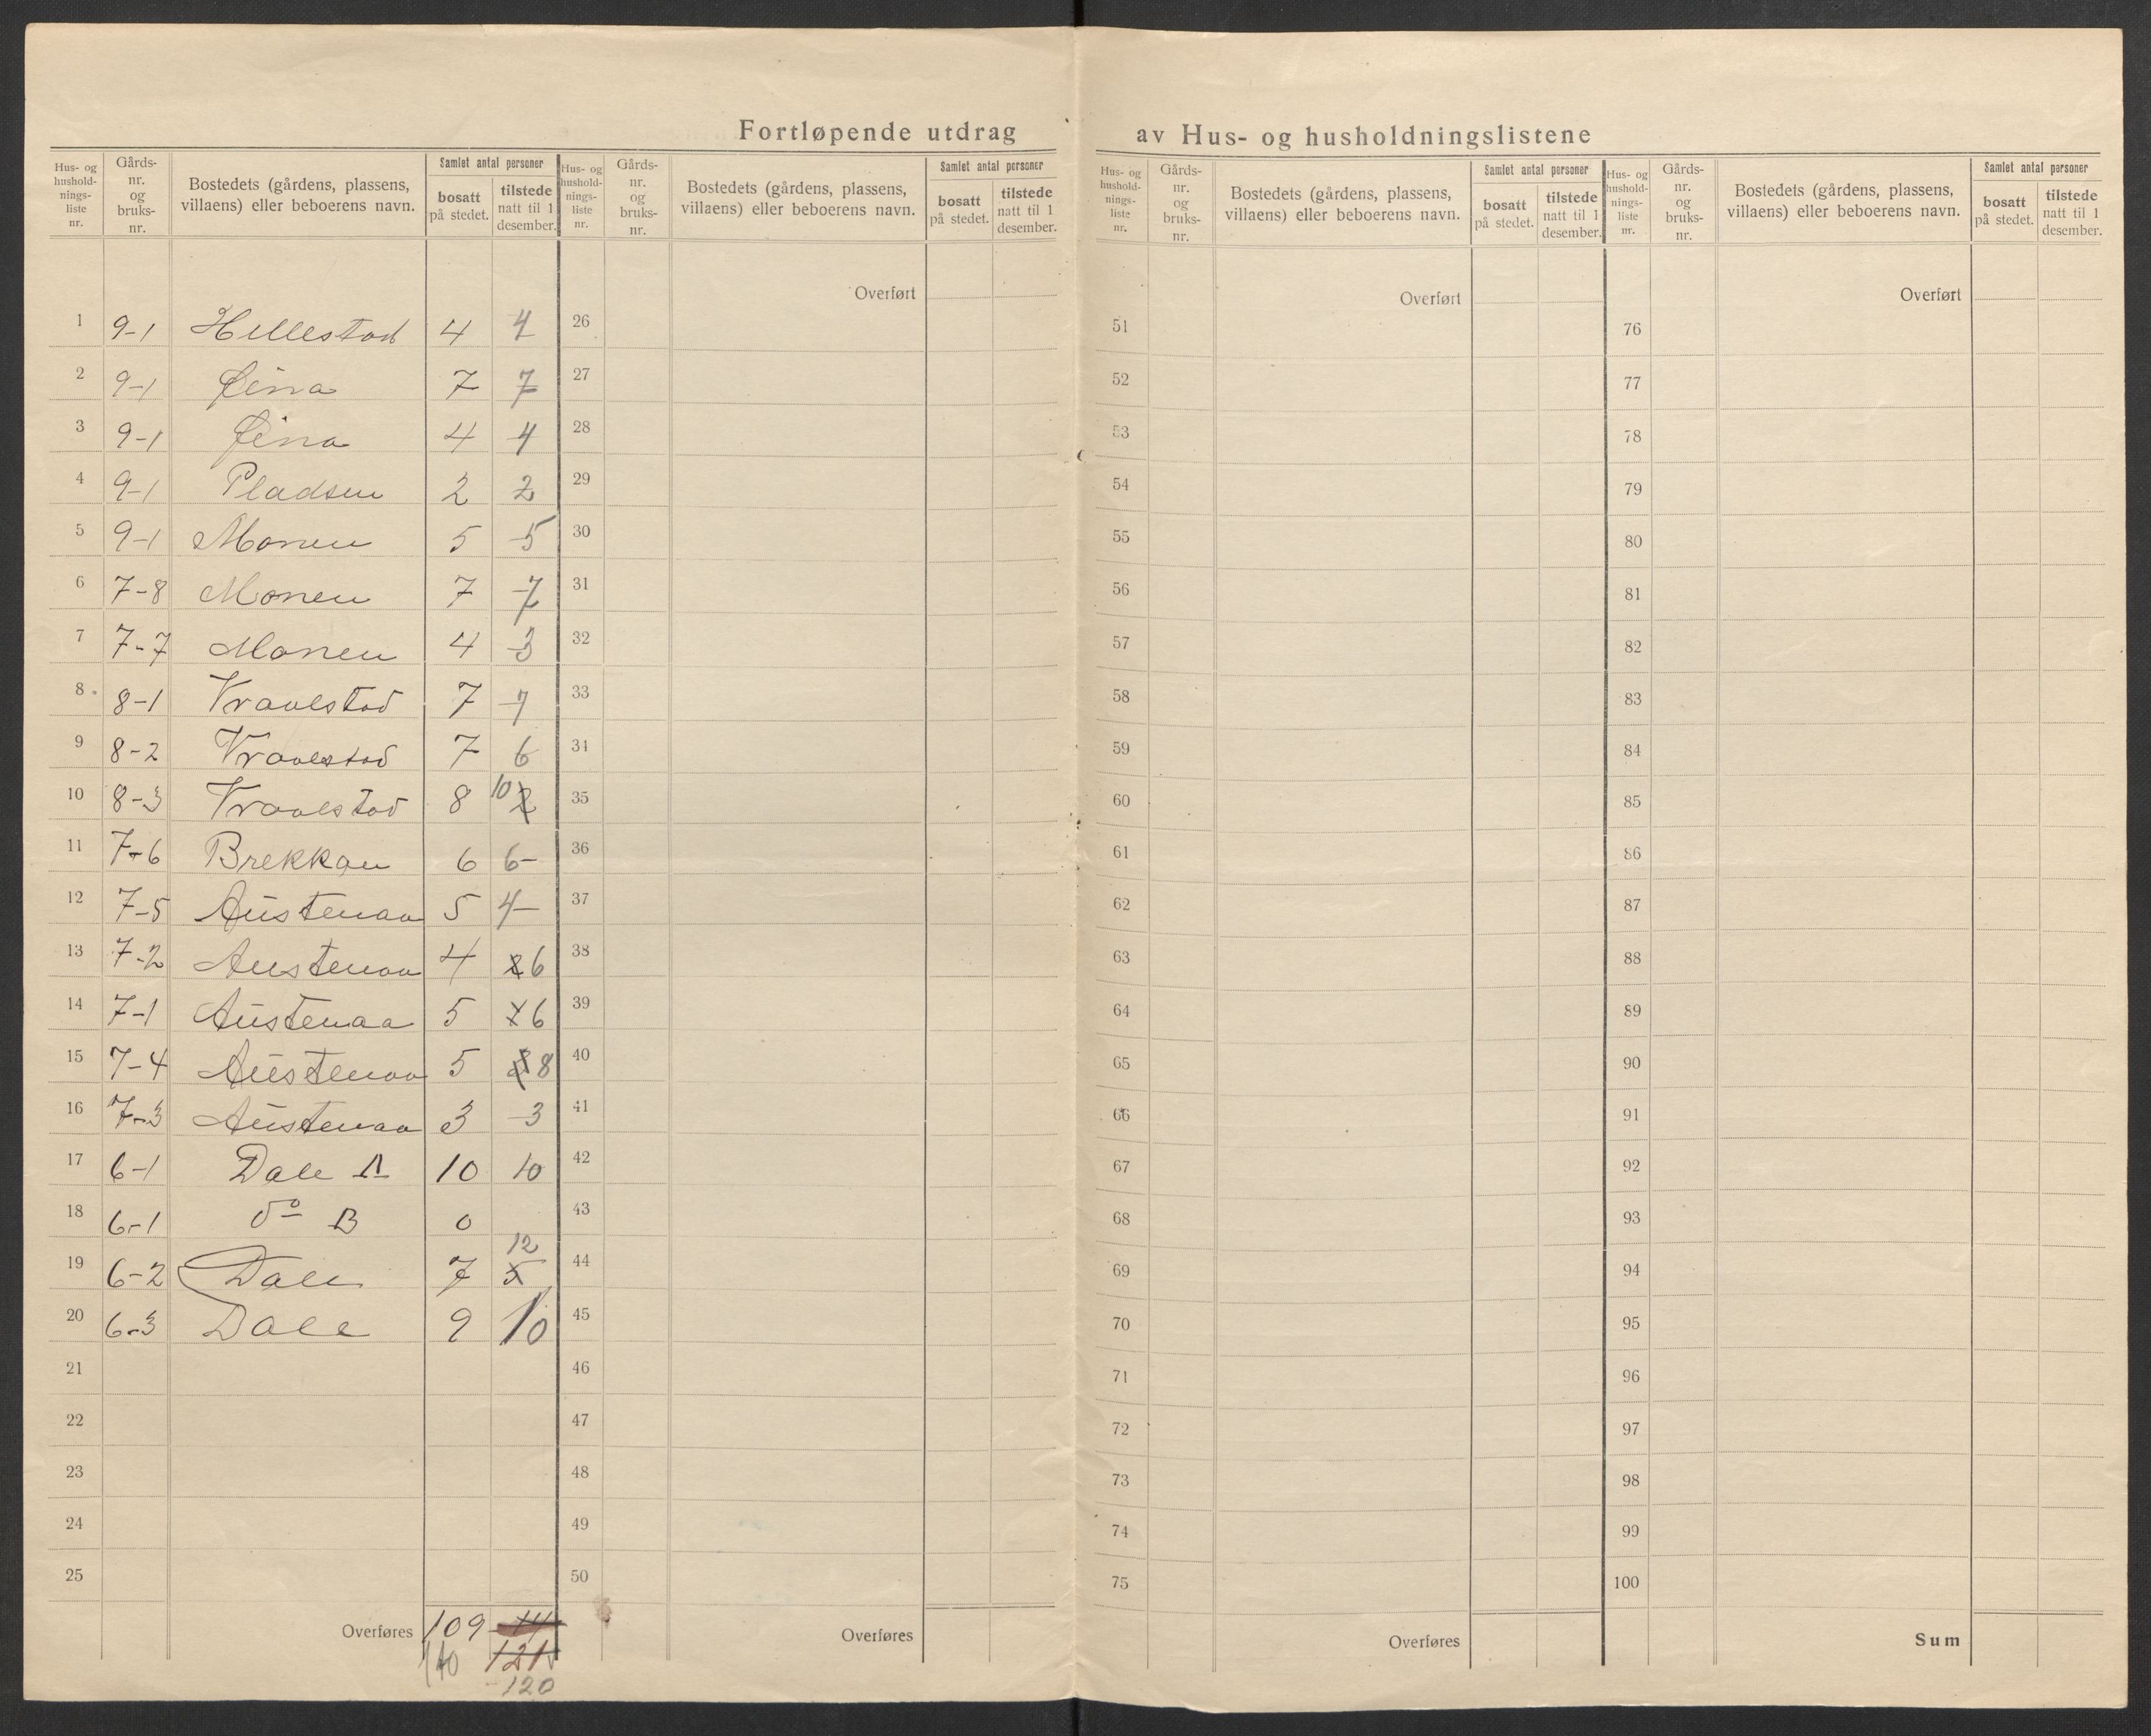 Fortløpende utdrag av Hus- og husholdningslistene
Hus- og hushold- nings- liste nr. Gårds- nr. og bruks- nr. Bostedets (gårdens, plassens, villaens) eller beboerens navn. Samlet antal personer bosatt på stedet. tilstede natt til 1 desember.
Hus- og hushold- nings- liste nr. Gårds- nr. og bruks- nr. Bostedets (gårdens, plassens, villaens) eller beboerens navn. Samlet antal personer bosatt på stedet. tilstede natt til 1 desember.
Hus- og hushold- nings- liste nr. Gårds- nr. og bruks- nr. Bostedets (gårdens, plassens, villaens) eller beboerens navn. Samlet antal personer bosatt på stedet. tilstede natt til 1 desember.
Hus- og hushold- nings- liste nr. Gårds- nr. og bruks- nr. Bostedets (gårdens, plassens, villaens) eller beboerens navn. Samlet antal personer bosatt på stedet. tilstede natt til 1 desember.
Overført Overført Overført
1 9-1 Hillestad 4 4 26 51 76
2 9-1 Øina 7 7 27 52 77
3 9-1 Øina 4 4 28 53 78
4 9-1 Pladsen 2 2 29 54 79
5 9-1 Monen 5 5 30 55 80
6 7-8 Monen 7 7 31 56 81
7 7-7 Monen 4 3 32 57 82
8 8-1 Vraalstad 7 7 33 58 83
9 8-2 Vraalstad 7 6 34 59 84
10 8-3 Vraalstad 8 10 35 60 85
11 7-6 Brekkan 6 6- 36 61 86
12 7-5 Austenaa 5 4- 37 62 87
13 7-2 Austenaa 4 6 38 63 88
14 7-1 Austenaa 5 6 39 64 89
15 7-4 Austenaa 5 8 40 65 90
16 7-3 Austenaa 3 3 41 66 91
17 6-1 Dale A 10 10 42 67 92
18 6-1 do B 0 43 68 93
19 6-2 Dale 7 12 5 44 69 94
20 6-3 Dale 9 10 45 70 95
21 46 71 96
22 47 72 97
23 48 73 98
24 49 74 99
25 50 75 100
Overføres 109 Overføres Overføres Sum
110 121
120